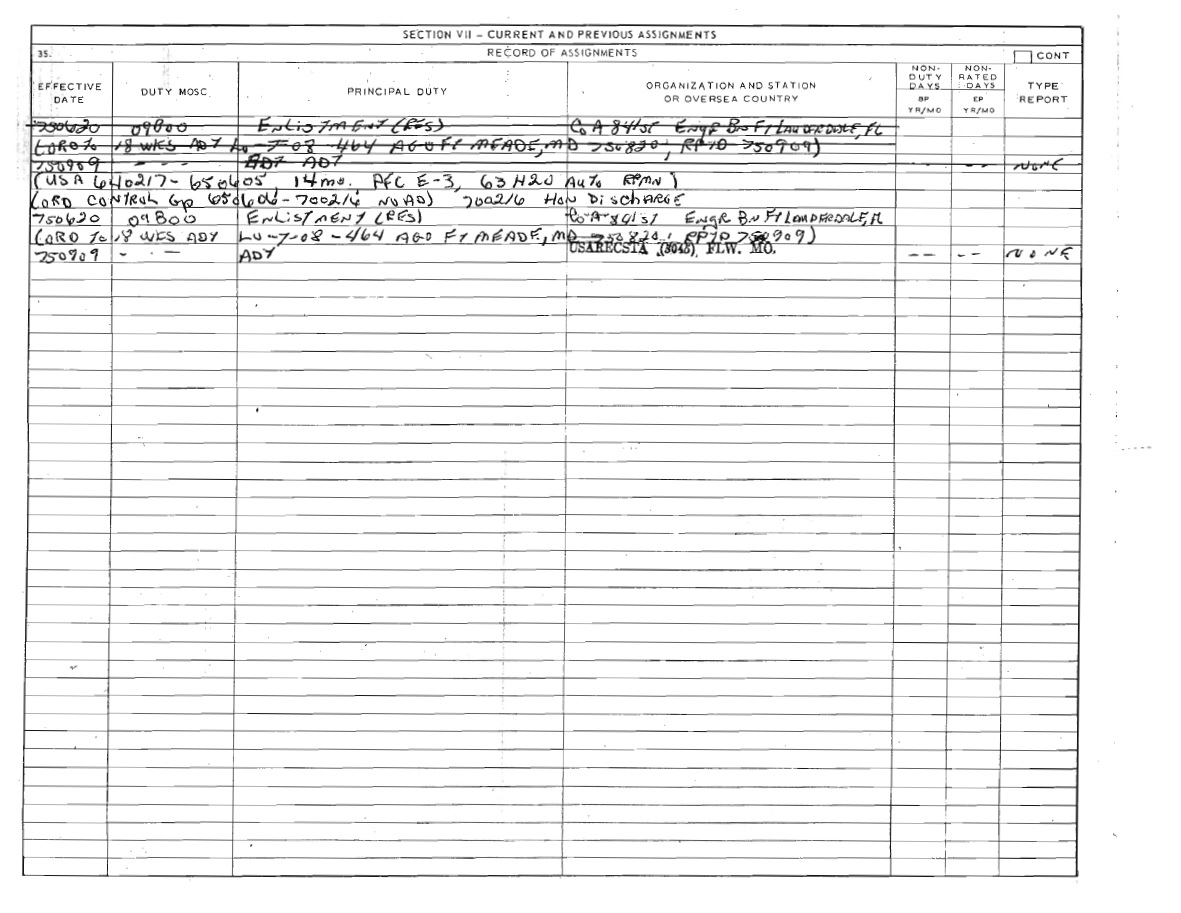 SECTION VII – CURRENT AND PREVIOUS ASSIGNMENTS
35. RECORD OF ASSIGNMENTS CONT
EFFECTIVE DATE DUTY MOSC PRINCIPAL DUTY ORGANIZATION AND STATION OR OVERSEA COUNTRY NON-DUTY DAYS BP YR/MO NON-RATED DAYS EP YR/MO TYPE REPORT
750620 09B00 ENLISTMENT (RES) Co A 841st ENGR BN FT LAUDERDALE, FL
(ORD To 18 WKS ADT Lo-7-08-464 AGO FT MEADE, MD 750820, RPTD 750909)
750909 - - - ADT NONE
(USA 640217-650605, 14 mo. PFC E-3, 63H20 AUTO RPMN)
(ORD CONTROL Gp 650606-700216 NO AD) 700216 HON DISCHARGE
750620 09B00 ENLISTMENT (RES) Co-A-841st ENGR BN FT LAUDERDALE, FL
(ORD To 18 WKS ADT LO-7-08-464 AGO FT MEADE, MD 750820, RPTD 750909)
750909 - - - ADT USARECSTA (3045), FLW. MO. -- -- NONE